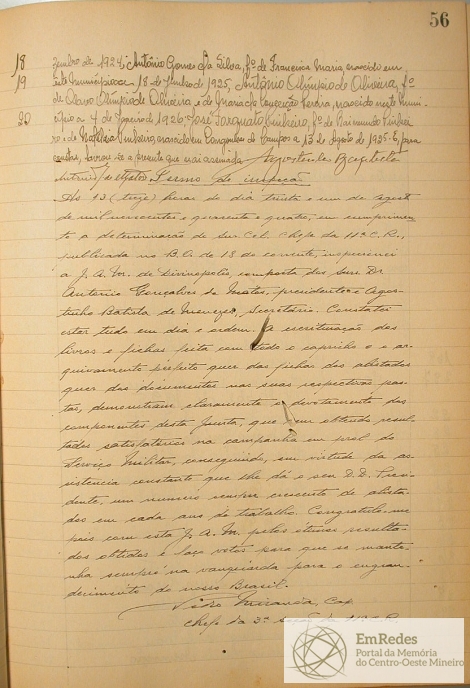 56
18 zembro de 1924; António Gomes da Silva, fº de Francisca Maria, nascido em
19 este município a 18 de Junho de 1925, António Olímpio de Oliveira, fº
de Olavo Olímpio de Oliveira e de Maria da Conceição Pereira, nascido neste muni-
20 cípio a 4 de Janeiro de 1926. José Torquato Pinheiro, fº de Raimundo Pinhei-
ro e de Pinheiro, nascido em Congonhas do Campo a 13 de Agosto de 1925. E, para
constar, lavrou-se a presente que vai assinada
Termo de inspeção
Às 13 (treze) horas do dia trinta e um de agost
de mil novecentos e quarenta e quatro, em cumprimen-
to a determinação do Snr. Cel. Chefe da 11ª C. R.,
publicada no B. I. de 18 do corrente, inspecionei
a J. A. M. de Divinópolis, composta dos Snrs. Dr.
Antonio Gonçalves de Matos, presidente e Agos-
tinho Batista de Menezes, Secretário. Constatei
estar tudo em dia e ordem. A escrituração dos
livros e fichas feita com todo o capricho e o ar-
quivamento perfeito quer das fichas dos alistados
quer dos documentos nas suas respectivas pas-
tas, demonstram claramente o devotamento dos
componentes desta Junta, que vem obtendo resul-
tados satisfatorios na campanha em prol do
Serviço Militar, conseguindo, em virtude da as-
sistencia constante que lhe dá o seu D.D. Presi-
dente, um numero sempre crescente de alista-
dos em cada ano de trabalho. Congratulo-me
pois com esta J. A. M. pelos otimos resulta-
dos obtidos e faço votos para que se mante-
nha sempre na vanguarda para o engran-
decimento do nosso Brasil.
Miranda, Cap
Chefe da 3ª seção da 11ª C.R.
EmRedes
Portal da Memória
do Centro-Oeste Mineiro